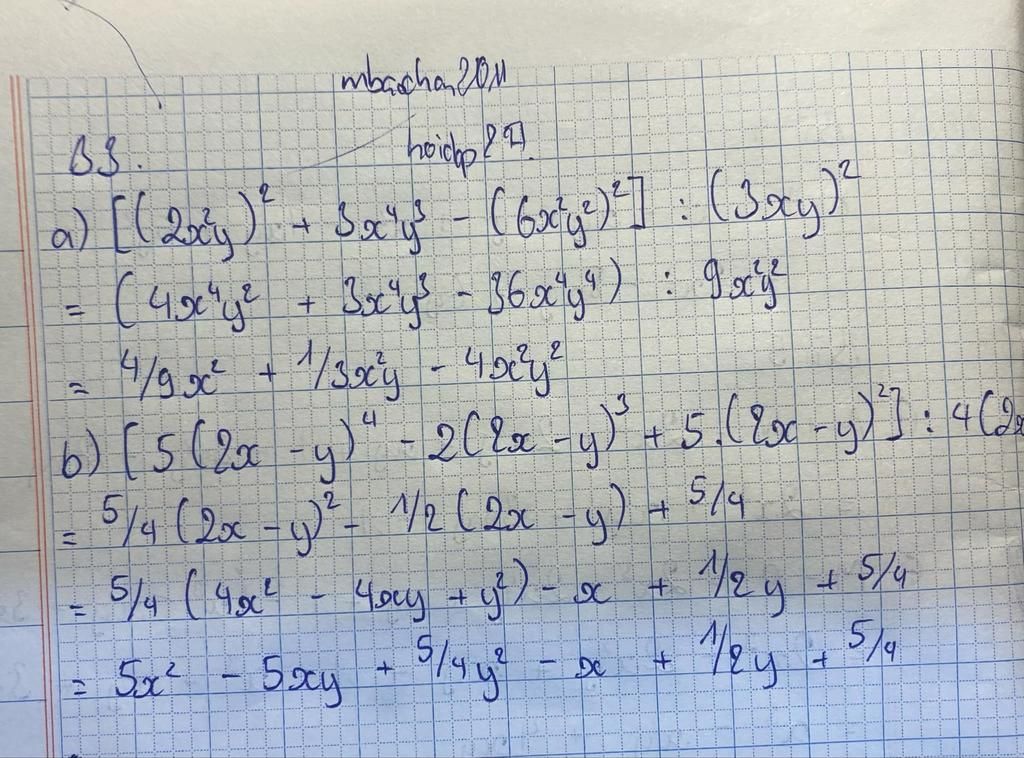 mbachan2011
hoidap247
B3.
a) [(2x²y)² + 3x⁴y³ - (6x²y²)²] : (3xy)²
= (4x⁴y² + 3x⁴y³ - 36x⁴y⁴) : 9x²y²
= 4/9x² + 1/3x²y - 4x²y²
b) [5(2x - y)⁴ - 2(2x - y)³ + 5.(2x - y)²] : 4(2x
= 5/4 (2x - y)² - 1/2 (2x - y) + 5/4
= 5/4 (4x² - 4xy + y²) - x + 1/2y + 5/4
= 5x² - 5xy + 5/4y² - x + 1/2y + 5/4